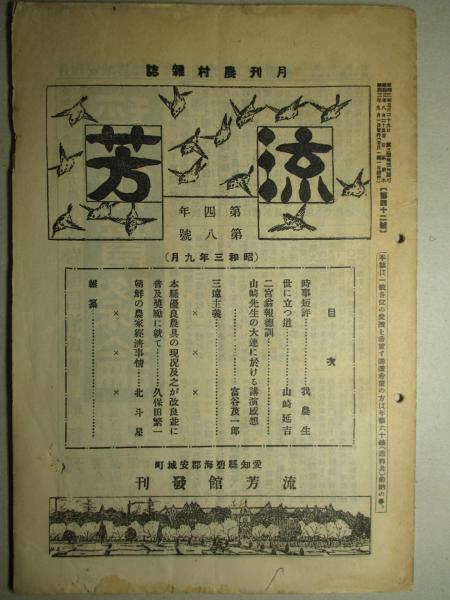 月刊農村雜誌
流芳
第四年
第八號
(昭和三年九月)
目次
時事短評……我農生
世に立つ道……山崎延吉
二宮翁報德訓
山崎先生の大連に於ける講演感想
……富谷茂一郎
三遠主義
× × ×
本縣優良農具の現況及之が改良並に
普及獎勵に就て……久保田繁一
朝鮮の農家經濟事情……北斗星
× × ×
雜纂
愛知縣碧海郡安城町
流芳館發刊
【第四十二號】